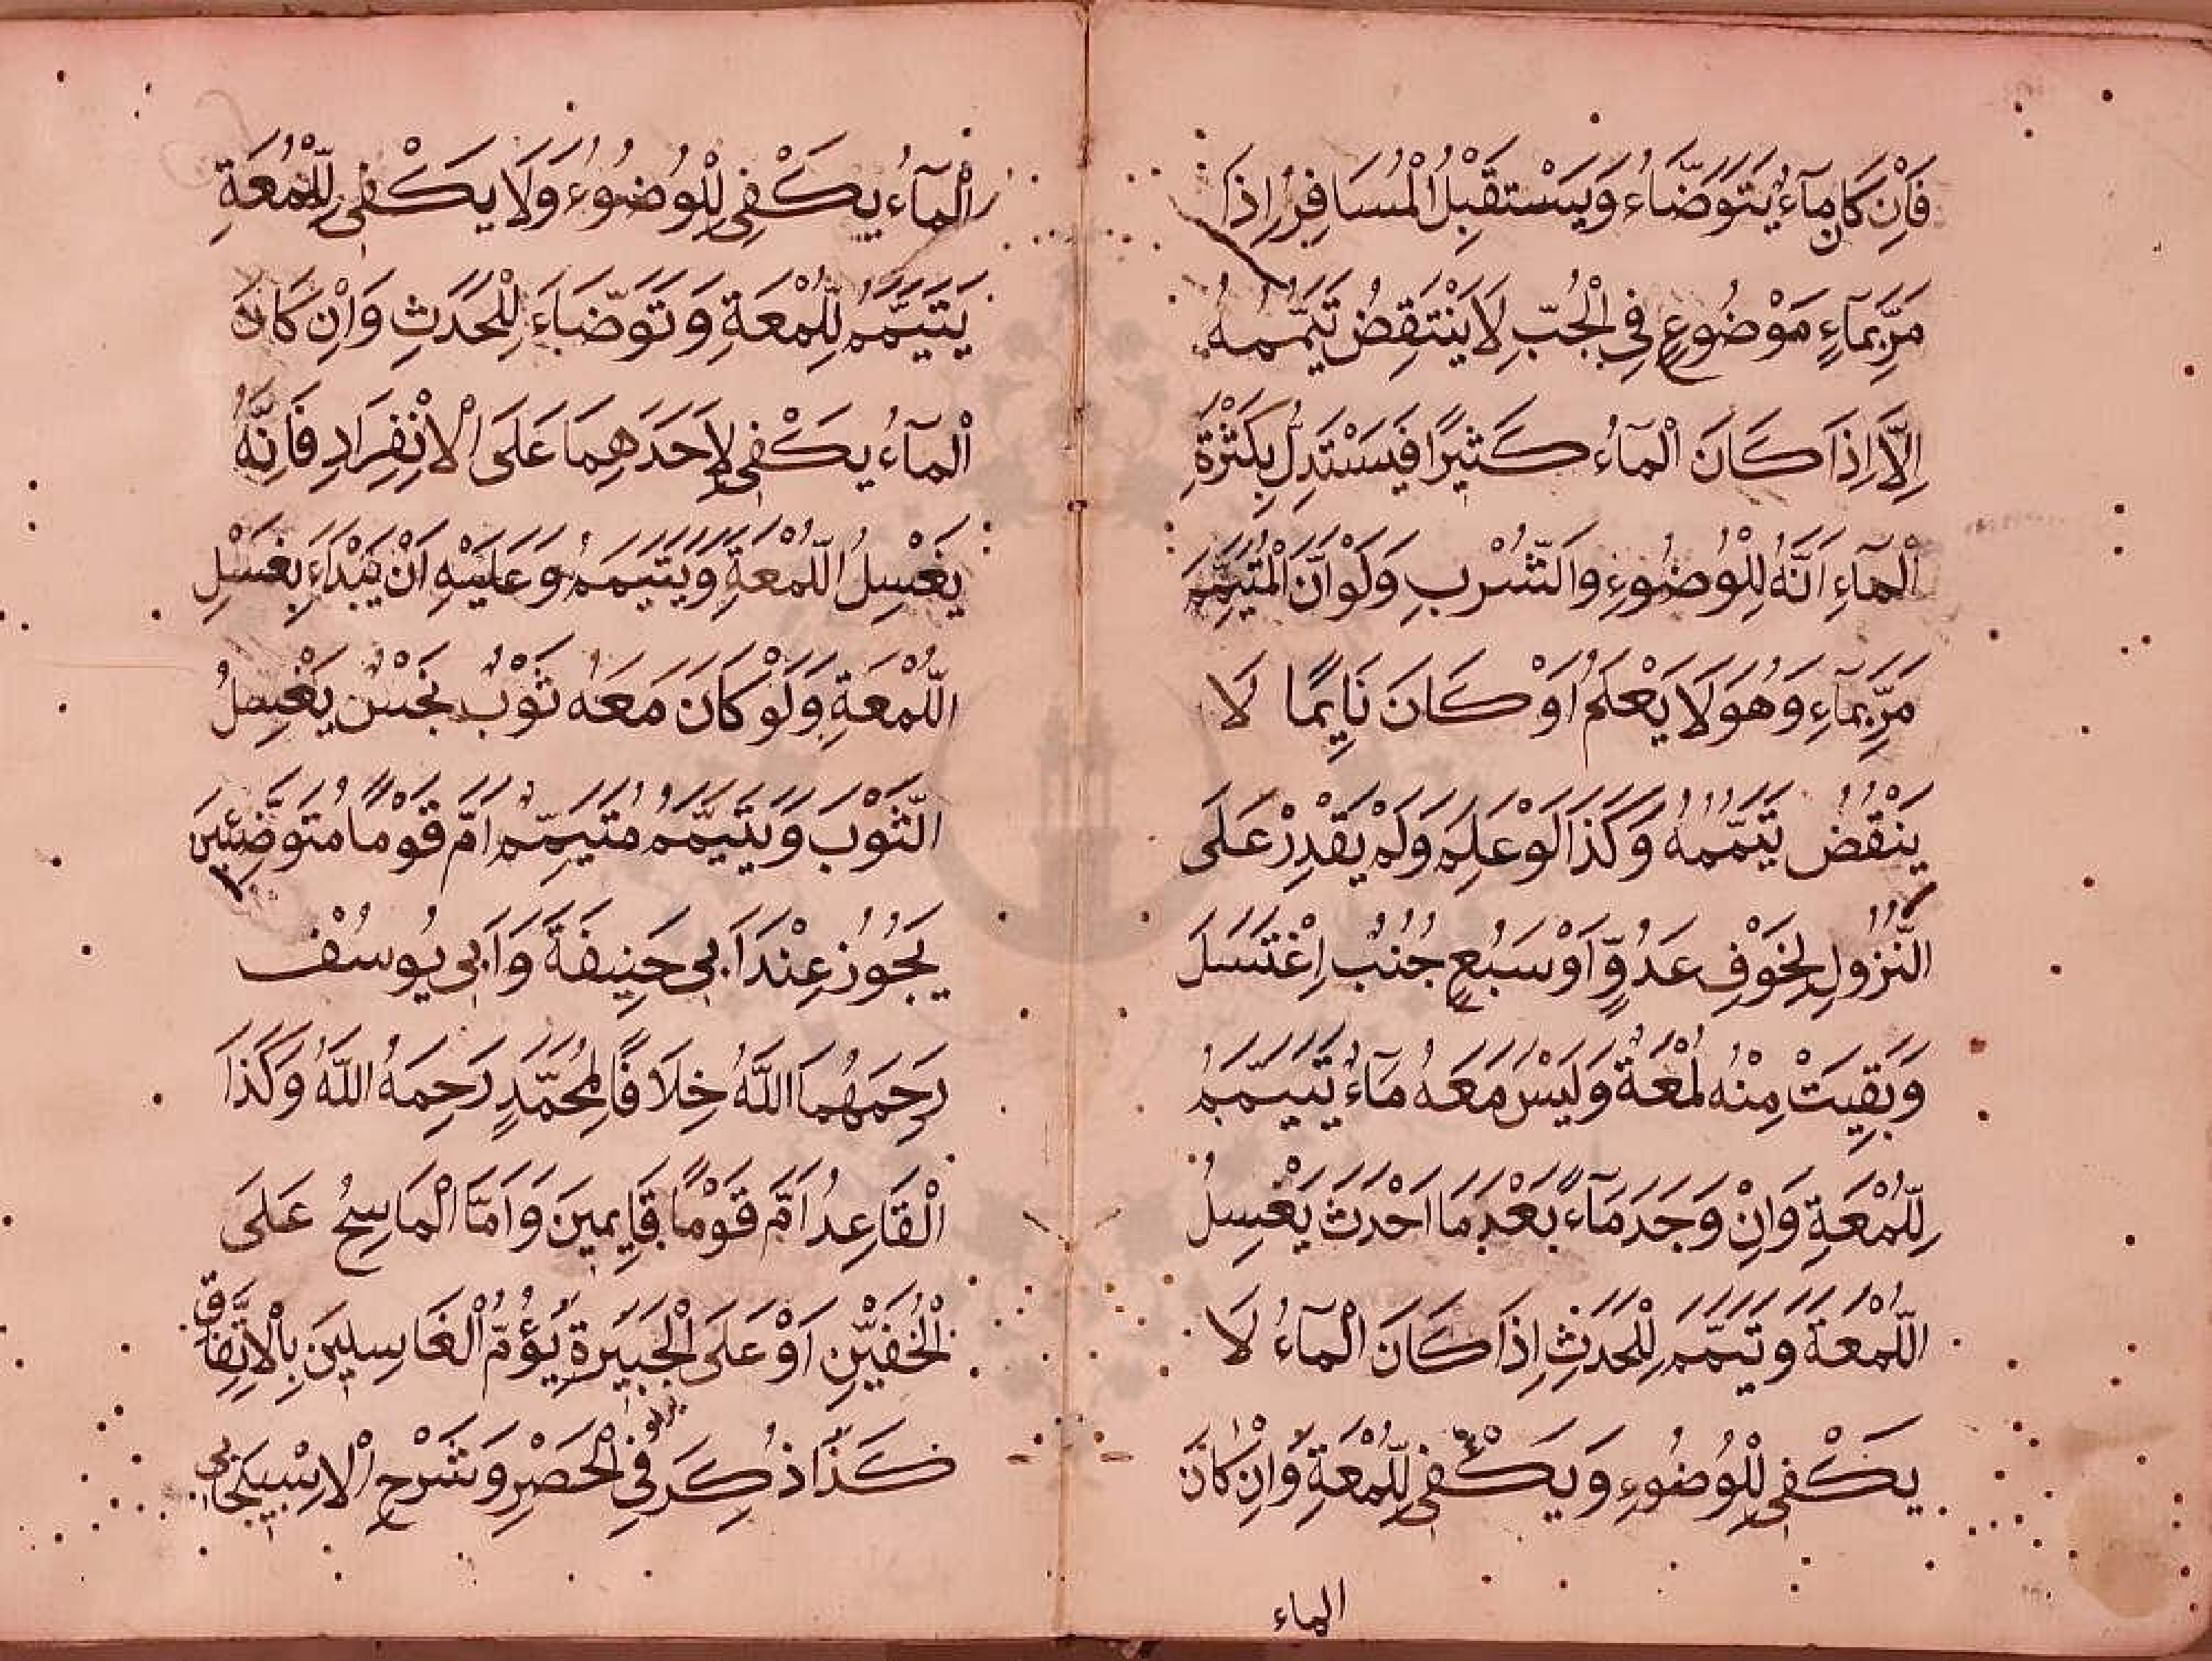 فَاِنْ كَانَ مَاءً يَتَوَضَّاءُ وَيَسْتَقْبِلُ الْمُسَافِرُ اِذَا
مَرَّ بِمَآءٍ مَوْضُوعٍ فِي الْجُبِّ لَا يَنْتَقِضُ تَيَمُّمُهُ
اِلَّا اِذَا كَانَ الْمَآءُ كَثِيرًا فَيَسْتَدِلُّ بِكَثْرَةِ
الْمَآءِ اَنَّهُ لِلْوُضُوءِ وَالشُّرْبِ وَلَوْ اَنَّ الْمُتَيَمِّمَ
مَرَّ بِمَآءٍ وَهُوَ لَا يَعْلَمُ اَوْ كَانَ نَايِمًا لَا
يَنْقُضُ تَيَمُّمُهُ وَكَذَا لَوْ عَلِمَ وَلَمْ يَقْدِرْ عَلَى
النُّزُولِ لِخَوْفِ عَدُوٍّ اَوْ سَبُعٍ جُنُبٌ اِغْتَسَلَ
وَبَقِيَتْ مِنْهُ لُمْعَةٌ وَلَيْسَ مَعَهُ مَآءٌ يَتَيَمَّمُ
لِلُّمْعَةِ وَاِنْ وَجَدَ مَآءً بَعْدَ مَا اَحْدَثَ يَغْسِلُ
اللُّمْعَةَ وَتَيَمَّمَ لِلْحَدَثِ اِذَا كَانَ الْمَآءُ لَا
يَكْفِي لِلْوُضُوءِ وَيَكْفِي لِلُّمْعَةِ وَاِنْ كَانَ
الماء
الْمَآءُ يَكْفِي لِلْوُضُوءِ وَلَا يَكْفِي لِلُّمْعَةِ
يَتَيَمَّمُ لِلُّمْعَةِ وَتَوَضَّاءَ لِلْحَدَثِ وَاِنْ كَانَ
الْمَآءُ يَكْفِي لِاَحَدِهِمَا عَلَى الْاِنْفِرَادِ فَاِنَّهُ
يَغْسِلُ اللُّمْعَةَ وَيَتَيَمَّمُ وَعَلَيْهِ اَنْ يَبْدَاَءَ بِغَسْلِ
اللُّمْعَةِ وَلَوْ كَانَ مَعَهُ ثَوْبٌ نَجْسٌ يَغْسِلُ
الثَّوْبَ وَيَتَيَمَّمُ مُتَيَمِّمٌ اَمَّ قَوْمًا مُتَوَضِّئِينَ
يَجُوزُ عِنْدَ اَبِي حَنِيفَةَ وَاَبِي يُوسُفَ
رَحِمَهُمَا اللّٰهُ خِلَافًا لِمُحَمَّدٍ رَحِمَهُ اللّٰهُ وَكَذَا
الْقَاعِدُ اَمَّ قَوْمًا قَايِمِينَ وَاَمَّا الْمَاسِحُ عَلَى
الْخُفَّيْنِ اَوْ عَلَى الْجَبِيرَةِ يَؤُمُّ الْغَاسِلِينَ بِالْاِتِّفَاقِ
كَذَا ذُكِرَ فِي الْحَصْرِ وَشَرْحِ الْاِسْبِيجَابِي